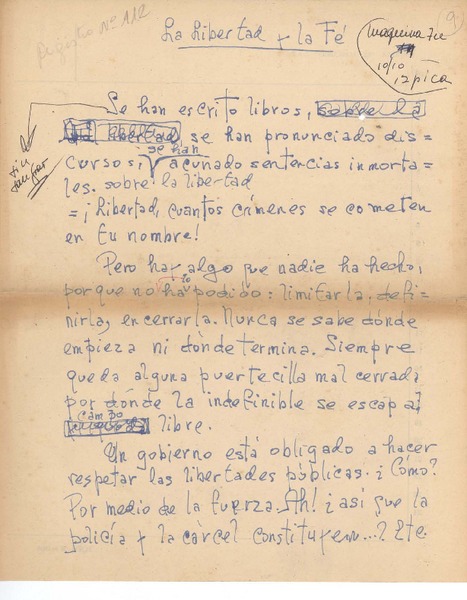 Registro Nº 112
9
La Libertad y la Fé
maquina 7u
10/10
12 pica
sin sangrar
Se han escrito libros, sobre la
la libertad se han pronunciado dis=
cursos; se han acuñado sentencias inmorta=
les. sobre la libertad
=¡Libertad, cuantos crímenes se cometen
en tu nombre!
Pero hay algo que nadie ha hecho,
porque no ha podido: limitarla, defi-
nirla, encerrarla. Nunca se sabe dónde
empieza ni dónde termina. Siempre
queda alguna puertecilla mal cerrada
por donde la indefinible se escapa al
campo libre.
Un gobierno está obligado a hacer
respetar las libertades públicas. ¿Cómo?
Por medio de la fuerza. Ah! ¿así que la
policía y la cárcel constituyen...? Etc.